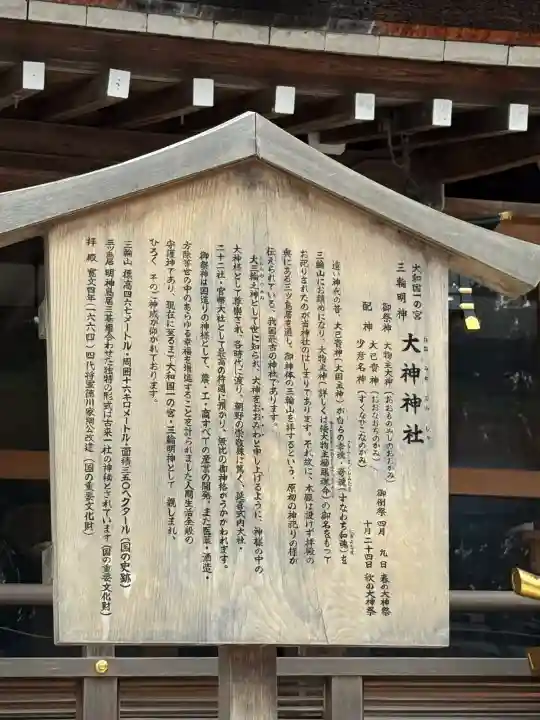 大和国一の宮
三輪明神
大神神社
おおみわじんじゃ
御祭神 大物主大神(おおものぬしのおおかみ)
配神 大己貴神(おおなむちのかみ)
少彦名神(すくなひこなのかみ)
御例祭 四月 九日 春の大神祭
十月二十四日 秋の大神祭
遠い神代の昔、大己貴神(大国主神)が自らの幸魂・奇魂(すなわち和魂)を
三輪山にお鎮めになり、大物主神(詳しくは倭大物主櫛𤭖魂命)の御名をもって
お祀りされたのが当神社のはじまりであります。それ故に、本殿は設けず拝殿の
奥にある三ツ鳥居を通し、御神体の三輪山を拝するという、原初の神祀りの様が
伝えられている、我国最古の神社であります。
大三輪之神として世に知られ、大神をおおみわと申し上げるように、神様の中の
大神様として尊崇され、各時代に渡り、朝野の崇敬殊に篤く、延喜式内大社・
二十二社・官幣大社として最高の待遇に預かり、無比の御神格がうかがわれます。
御祭神は国造りの神様として、農・工・商すべての産業の開発、また医薬・酒造・
方除等世の中のあらゆる幸福を増進することを計られました人間生活全般の
守護神であり、現在に至るまで大和国一の宮・三輪明神として 親しまれ、
ひろく、その二神威が仰がれております。
三輪山 標高四六七メートル・周囲十六キロメートル・面積三五〇ヘクタール(国の史跡)
三ツ鳥居 明神鳥居三基組合わせた独特の形式は古来一社の神秘とされています(国の重要文化財)
拝殿 寛文四年(一六六四)四代将軍徳川家綱公改造(国の重要文化財)